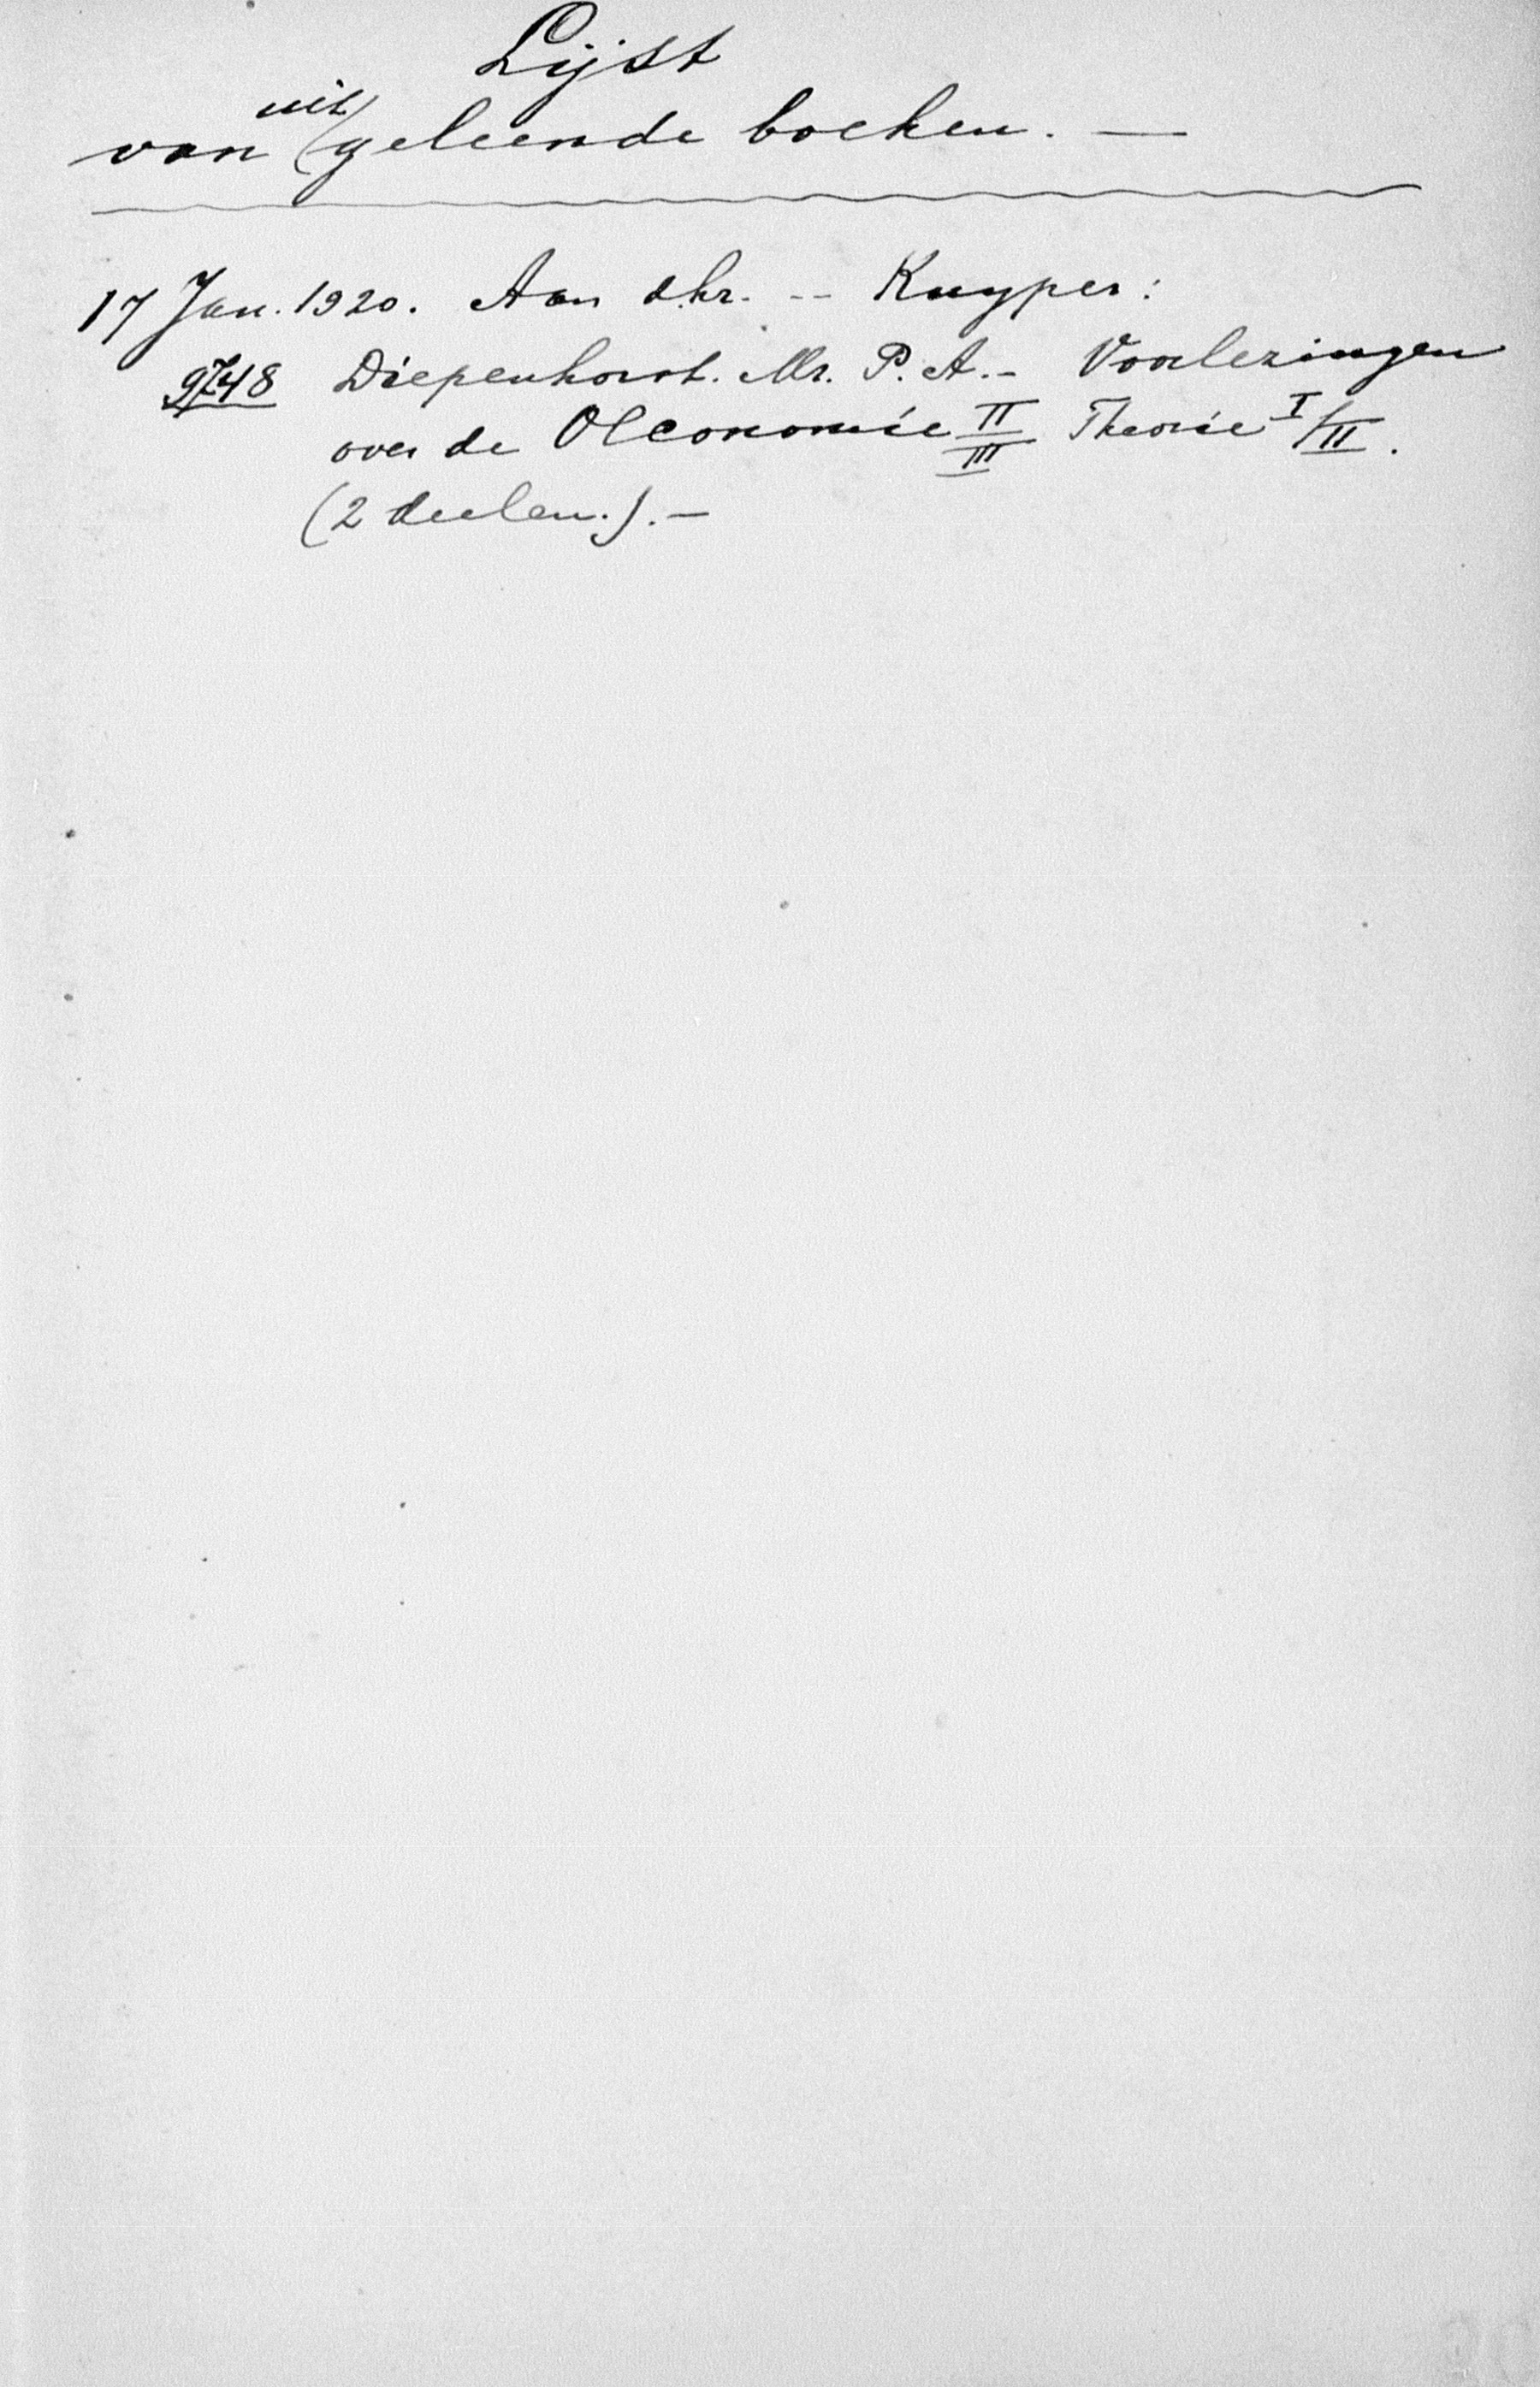 Lijst
van uitgeleende boeken. —
17 Jan. 1920. Aan dhr. -- Kuyper:
9748 Diepenhorst. Mr. P. A. - Voorlezingen
over de Oeconomie II III Theorie I/II.
(2 deelen.). —